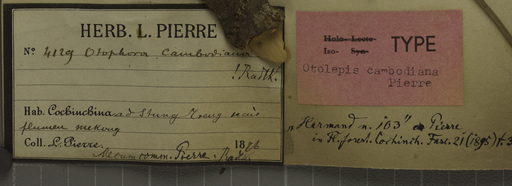 HERB. L. PIERRE
No. 4129 Otophora cambodiana
! Radlk.
Hab. Cochinchina ad Stung Treng
flumen mekong
Coll. L. Pierre. 18
Mecum comm. Pierre.
Holo- Lecto-
Iso- Syn- TYPE
Otolepis cambodiana
Pierre
"Harmand n. 103" Pierre
in Fl. forest. Cochinch. Fasc. 21 (1895) t. 3